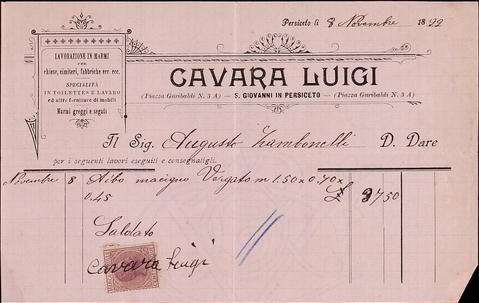 Persiceto li 8 Novembre 1899
LAVORAZIONE IN MARMI
PER
chiese, cimiteri, fabbriche ecc. ecc.
SPECIALITÀ
IN TOILETTES E LAVABO
ed altre forniture di mobili
Marmi greggi e segati
CAVARA LUIGI
(Piazza Garibaldi N. 3 A) — S. GIOVANNI IN PERSICETO — (Piazza Garibaldi N. 3 A)
Il Sig. Augusto Zambonelli D. Dare
per i seguenti lavori eseguiti e consegnatigli.
Novembre 8 macigno Vergato m 1.50 x 0.70 x
0.45 £ 37 50
Saldato
Cavara Luigi